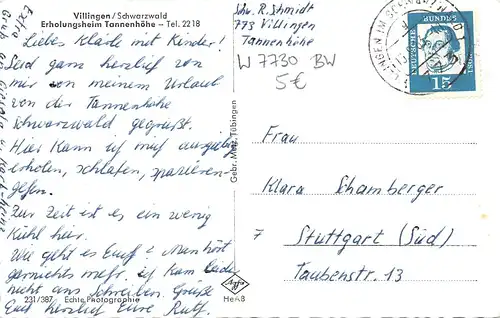 Villingen/Schwarzwald
Erholungsheim Tannenhöhe – Tel. 2218
Liebes Klärle mit Kinder!
Seid ganz herzlich von
mir von meinem Urlaub
von der Tannenhöhe
Schwarzwald gegrüßt.
Hier kann ich mich ausgiebig
erholen, schlafen, spazieren-
gehen.
Zur Zeit ist es ein wenig
kühl hier.
Wie geht es Euch? Man hört
garnichts mehr. Ich kam leider
nicht ans Schreiben. Grüße
Euch herzlich Eure Ruth.
231/387 Echte Photographie
Extra
Gebr. Metz, Tübingen
Agfa
HeAß
R. Schmidt
773 Villingen
Tannenhöhe
W 7730 BW
5€
DEUTSCHE BUNDESPOST
15
Frau
Klara Schamberger
7 Stuttgart (Süd)
Taubenstr. 13